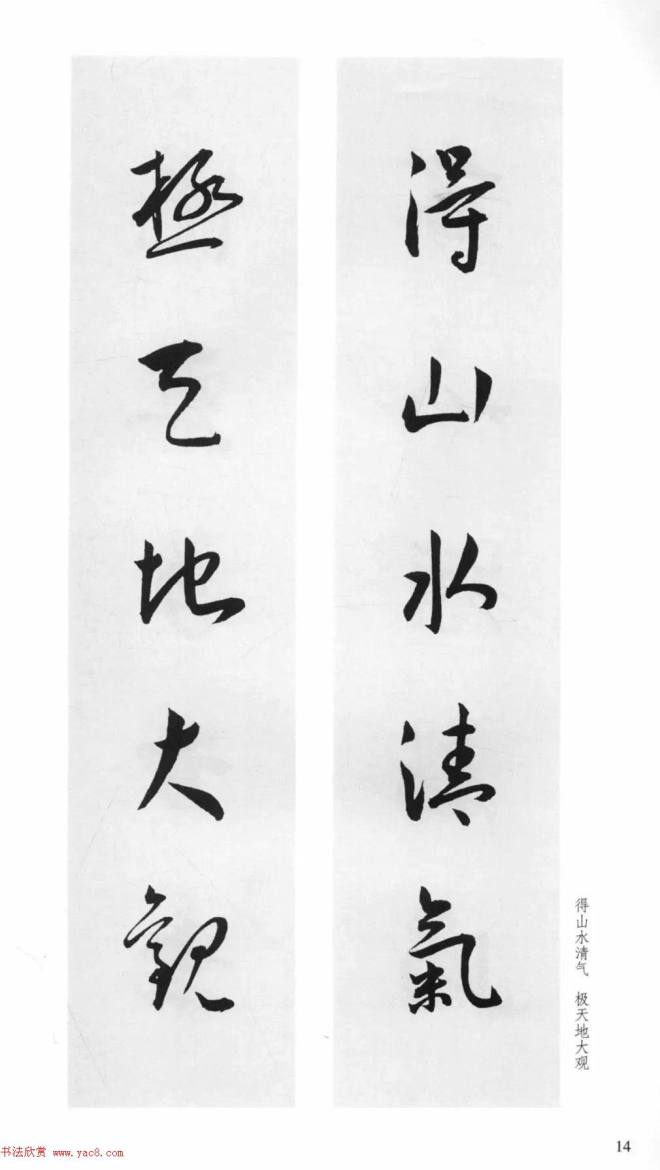 得山水清氣
極天地大觀
得山水清气 极天地大观
14
书法欣赏 www.yac8.com